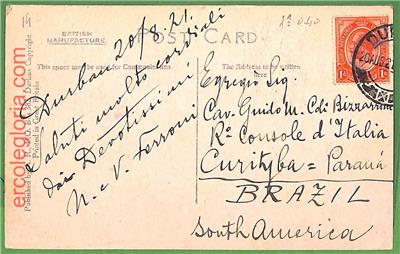 14
1ª 040
BRITISH
MANUFACTURE
POST CARD
This space may be used for Communication.
The Address to be written
here
Durban 20/8.21.
Saluti molto cordiali
dai Devotissimi
N. e V. Ferroni
Egregio Sig.
Cav. Guido M. Cdi Bizzarrini
Rº Console d'Italia
Curityba = Paraná
BRAZIL
South America
20 AUG 21
ercolegloria.com
Durban Copyright.
Printed in Great Britain